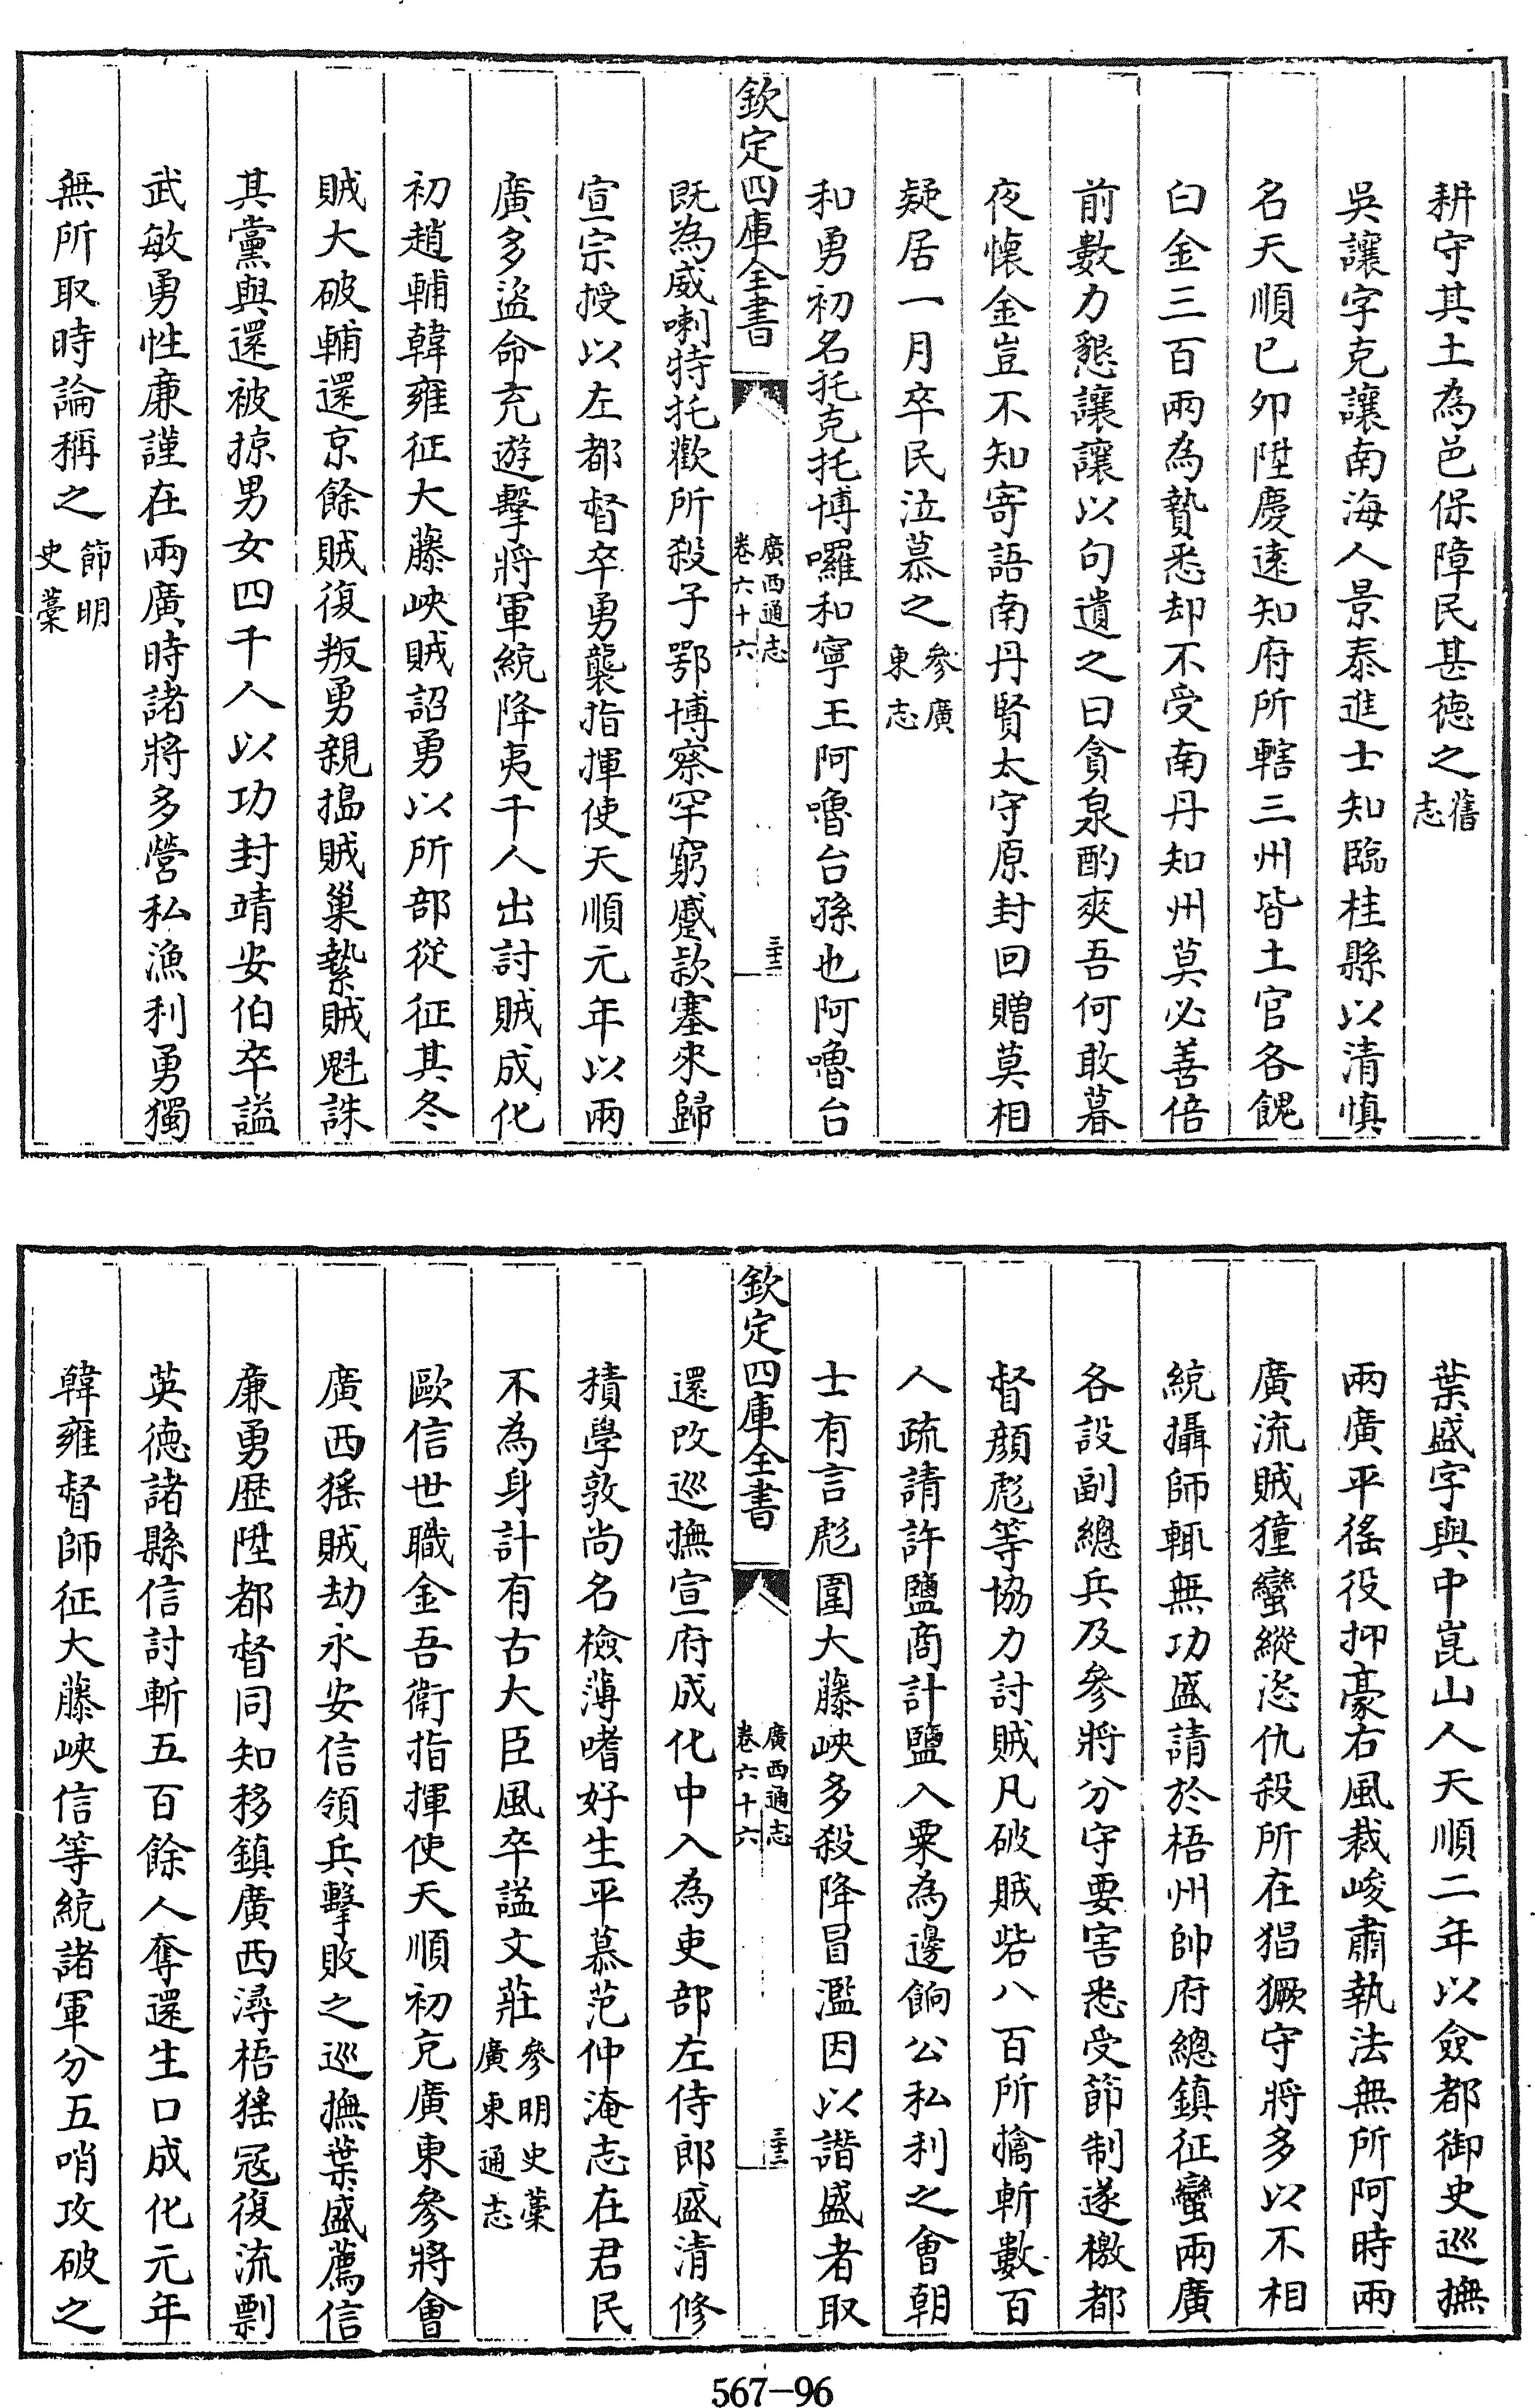 耕守其土為邑保障民甚德之舊志
吳讓字克讓南海人景泰進士知臨桂縣以清慎
名天順已卯陞慶遠知府所轄三州皆土官各餽
白金三百兩為贄悉却不受南丹知州莫必善倍
前數力懇讓讓以句遺之曰貪泉酌爽吾何敢暮
夜懷金豈不知寄語南丹賢太守原封回贈莫相
疑居一月卒民泣慕之參廣東志
和勇初名托克托博囉和寧王阿嚕台孫也阿嚕台
欽定四庫全書
廣西通志
卷六十六
三十三
既為威喇特托歡所殺子鄂博察罕窮蹙款塞來歸
宣宗授以左都督卒勇襲指揮使天順元年以兩
廣多盜命充遊擊將軍統降夷千人出討賊成化
初趙輔韓雍征大藤峽賊詔勇以所部從征其冬
賊大破輔還京餘賊復叛勇親搗賊巢縶賊魁誅
其黨與還被掠男女四千人以功封靖安伯卒謚
武敏勇性廉謹在兩廣時諸將多營私漁利勇獨
無所取時論稱之節明史藁
葉盛字與中崑山人天順二年以僉都御史巡撫
兩廣平徭役抑豪右風裁峻肅執法無所阿時兩
廣流賊獞蠻縱恣仇殺所在猖獗守將多以不相
統攝師輒無功盛請於梧州帥府總鎮征蠻兩廣
各設副總兵及參將分守要害悉受節制遂檄都
督顔彪等協力討賊凡破賊砦八百所擒斬數百
人疏請許鹽商計鹽入粟為邊餉公私利之會朝
士有言彪圍大藤峽多殺降冒濫因以譖盛者取
欽定四庫全書
廣西通志
卷六十六
三十三
還改巡撫宣府成化中入為吏部左侍郎盛清修
積學敦尚名檢薄嗜好生平慕范仲淹志在君民
不為身計有古大臣風卒謚文莊參明史藁廣東通志
歐信世職金吾衛指揮使天順初充廣東參將會
廣西猺賊劫永安信領兵擊敗之巡撫葉盛薦信
廉勇歴陞都督同知移鎮廣西潯梧猺冦復流剽
英德諸縣信討斬五百餘人奪還生口成化元年
韓雍督師征大藤峽信等統諸軍分五哨攻破之
567-96